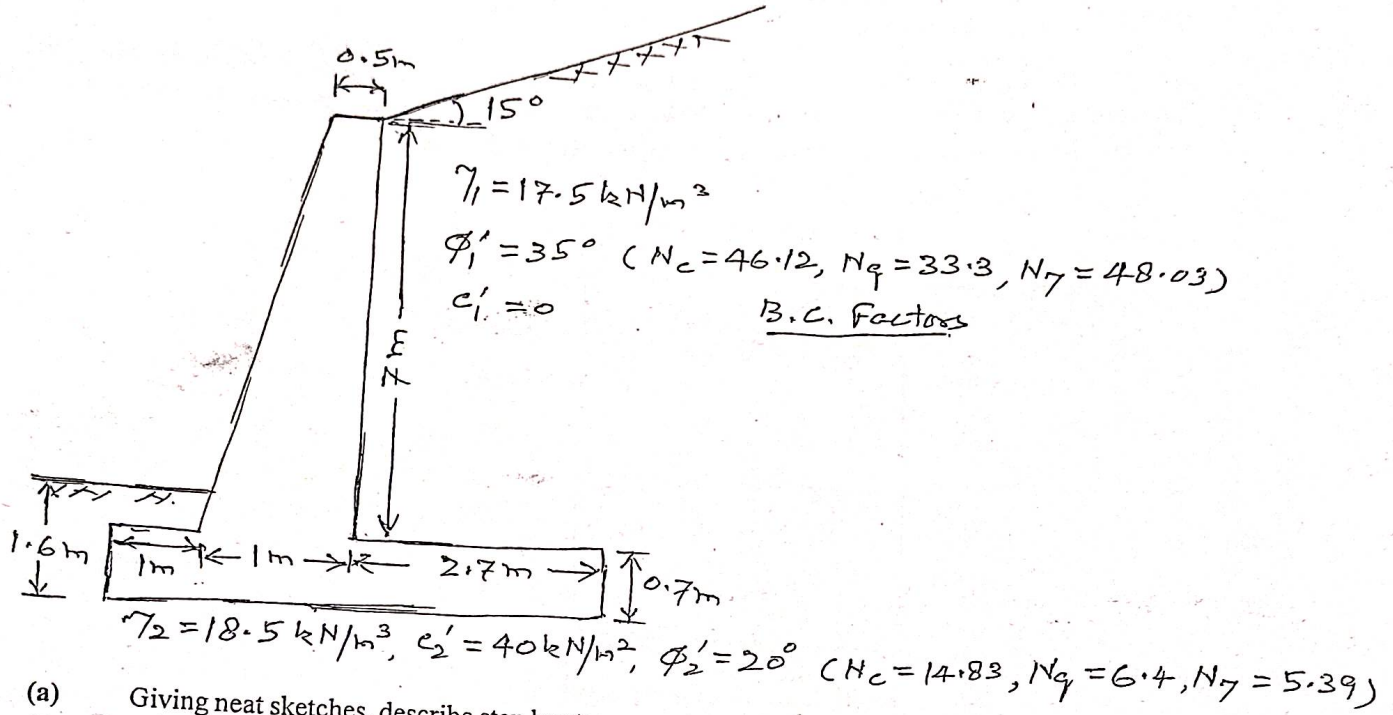 0.5m
15°
γ₁ = 17.5 kN/m³
ø₁' = 35° (Nc = 46.12, Nq = 33.3, Nγ = 48.03)
c₁' = 0
B.C. Factors
7m
1.6m
1m
1m
2.7m
0.7m
γ₂ = 18.5 kN/m³, c₂' = 40 kN/m², ø₂' = 20° (Nc = 14.83, Nq = 6.4, Nγ = 5.39)
(a) Giving neat sketches, describe